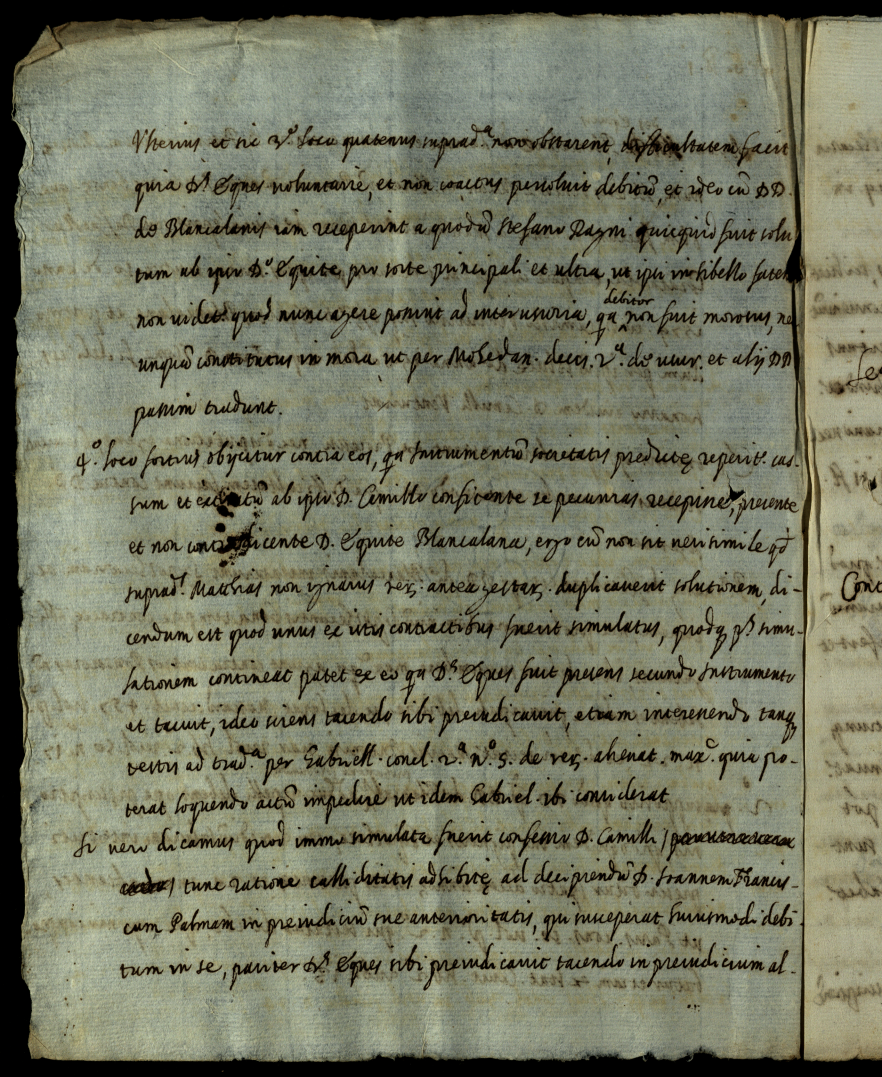 Ulterius et sic 3.º loco quatenus suprad.ª non obstarent, difficultatem facit
quia D.s Eques voluntarie, et non coactus persoluit debitū, et ideo cū DD.
de Blancalanis iam receperint a quodā Stefano Ragni quicquid fuit solu
tum ab ipso D.º Equite pro sorte principali et ultra, ut ipsi in libello faten
non videt.r quod nunc agere possint ad interusuria, qa debitor non fuit morosus, ne
unquā constitutus in mora ut per Mohedan. decis. 2.ª de usur. et alij DD
passim tradunt.
4.º loco fortius obijcitur contra eos, qa Instrumentū societatis predictę reperit.r cas-
sum et cassatū ab ipso D. Camillo confitente se pecunias recepisse, presente
et non contradicente D. Equite Blancalana, ergo cū non sit verisimile qd
suprad.s Matthias non ignarus reȝ. antea gestaȝ. duplicaverit solutionem, di-
cendum est quod unus ex istis contractibus fuerit simulatus, quodq p.s simu-
lationem contineat patet ex eo qa D.s Eques fuit presens secundo Instrumento
et tacuit, ideo sciens tacendo sibi preiudicavit, etiam interessendo tanq
testis ad trad.ª per Gabriell. concl. 2.ª n.º 5. de reȝ. alienat. max.e quia po-
terat loquendo actū impedire ut idem Gabriel ibi considerat
Si vero dicamus quod immo simulata fuerit confessio D. Camilli
tunc ratione calliditatis adhibitę ad decipiendū D. Ioannem Francis-
cum Palmam in preiudiciū sue anterioritatis, qui susceperat huiusmodi debi
tum in se, pariter D.s Eques sibi preiudicavit tacendo in preiudicium al-